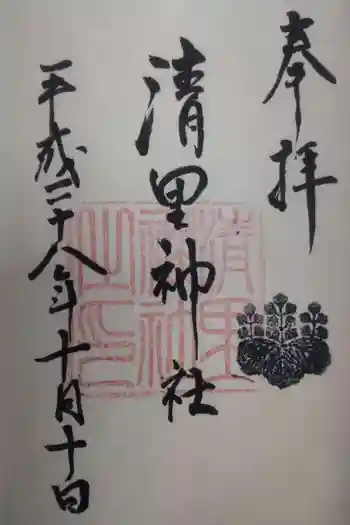 奉拝
清里神社
平成二十八年十月十日
清里
神社
之印